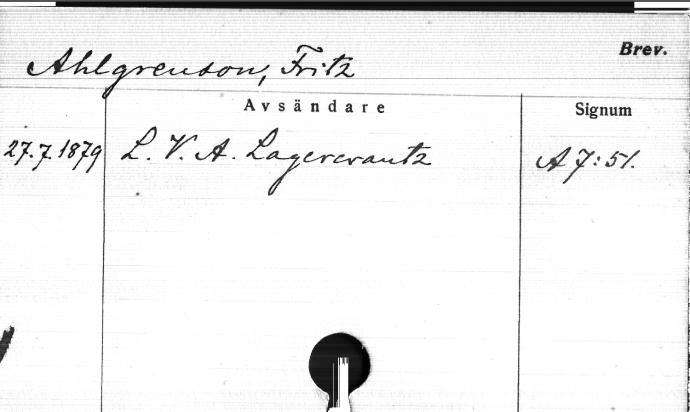 Brev.
Ahlgrenson, Fritz
Avsändare Signum
27.7.1879 L. V. A. Lagercrantz A 7:51.